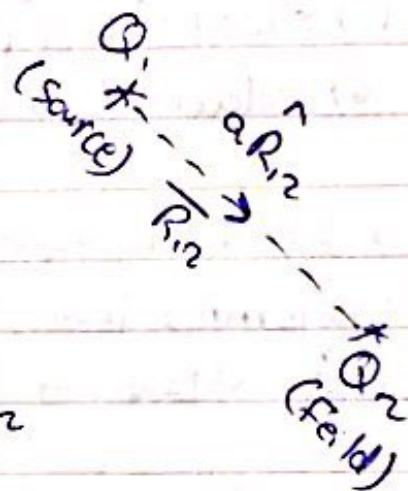 Q₁
(source)
aR₁₂^
R₁₂
Q₂
(feild)
2